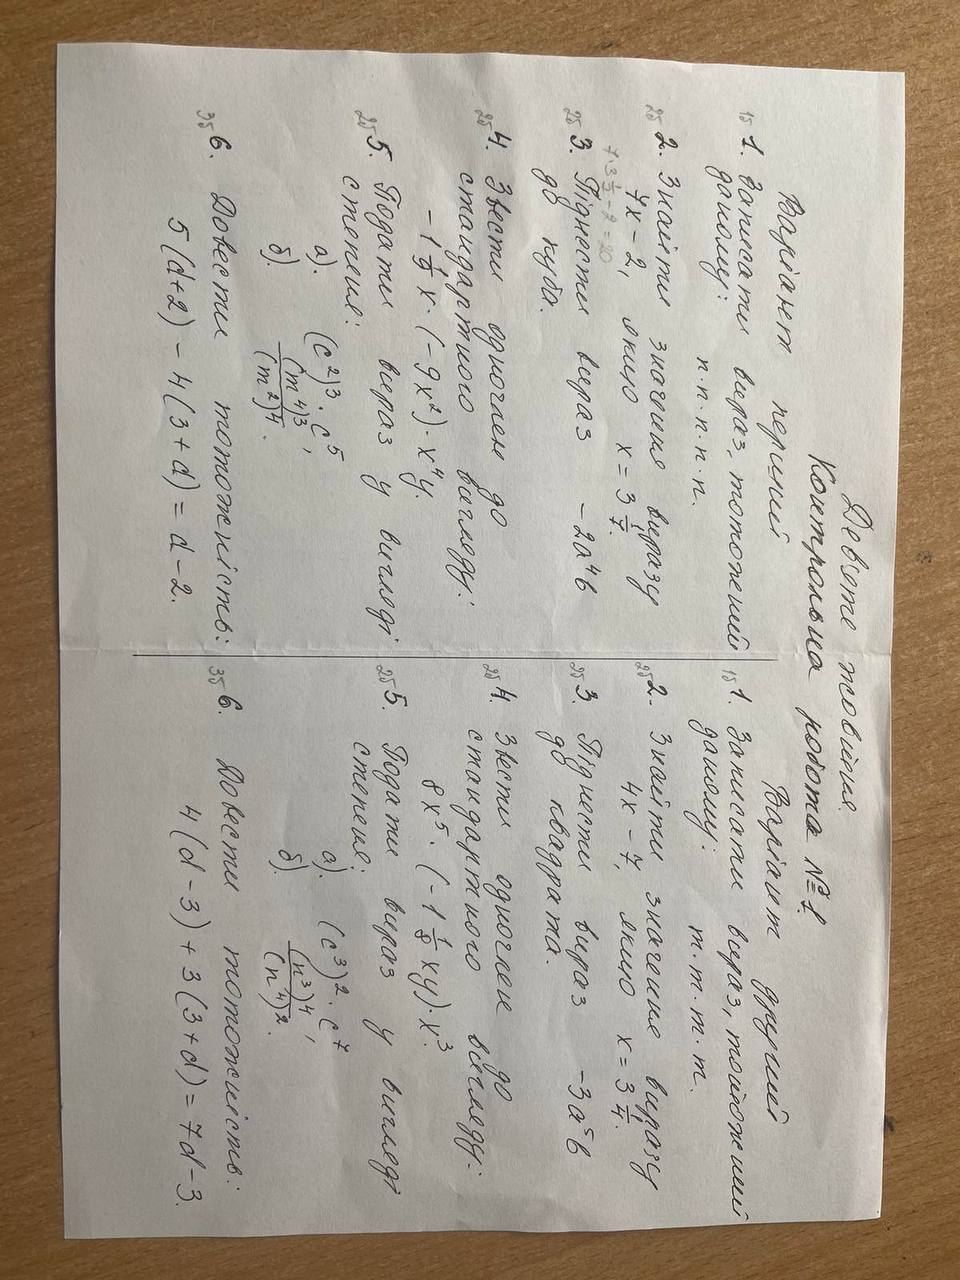 Дев'яте жовтня.
Контрольна робота №1.
Варіант перший
1б 1. Записати вираз, тотожний
даному:
n·n·n·n·n.
2б 2. Знайти значення виразу
7x – 2, якщо x = 3 1/7.
7·3 1/7 – 2 = 20
2б 3. Піднести вираз –2a⁴b
до куба.
2б 4. Звести одночлен до
стандартного вигляду:
–1 1/9 x · (–9x²) · x⁴y.
2б 5. Подати вираз у вигляді
степеня:
а). (c²)³ · c⁵,
б). (m⁴)³/(m²)⁴.
3б 6. Довести тотожність:
5(d+2) – 4(3+d) = d – 2.
Варіант другий
1б 1. Записати вираз, тотожний
даному:
m·m·m·m.
2б 2. Знайти значення виразу
4x – 7, якщо x = 3 1/4.
2б 3. Піднести вираз –3a⁵b
до квадрата.
2б 4. Звести одночлен до
стандартного вигляду:
8x⁵ · (–1 1/8 xy) · x³.
2б 5. Подати вираз у вигляді
степеня:
а). (c³)² · c⁷,
б). (n³)⁴/(n⁴)².
3б 6. Довести тотожність:
4(d – 3) + 3(3+d) = 7d – 3.